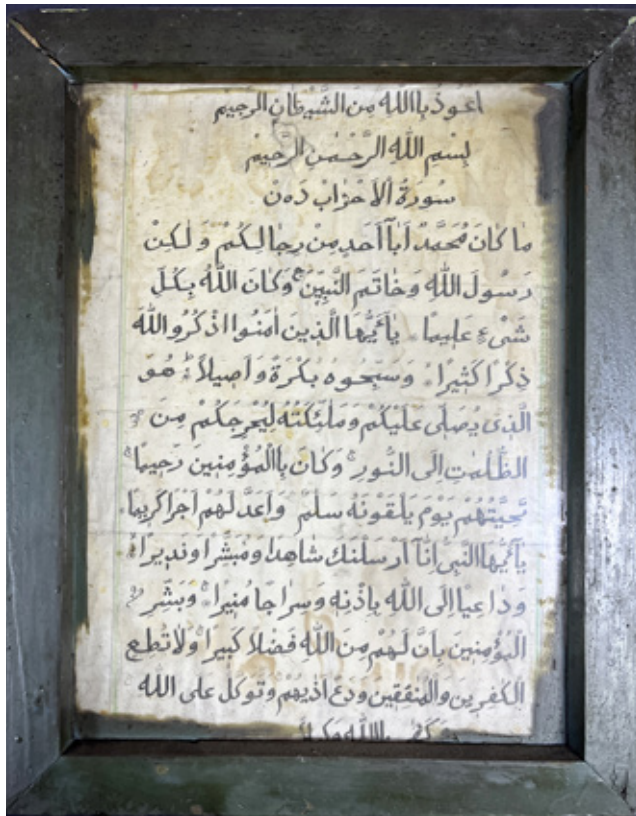 اعوذ باالله من الشيطان الرجيم
بسم الله الرحمن الرحيم
سورة ألاحزاب دەن
ما كان محمد أباآ أحد من رجالكم و لكن
رسول الله وخاتم النبين وكان الله بكل
شىء عليما يٰأيها الذين امنوا اذكروا الله
ذكرا كثيرا وسبحوه بكرة و أصيلا هو
الذى يصلى عليكم وملئكته ليخرجكم من
الظلمٰت الى النور وكان باالمؤمنين رحيما
تحيتهم يوم يلقونه سلم واعد لهم اجرا كريما
يٰأيها النبى إنآ أرسلنك شاهدا ومبشرا ونذيرا
وداعيا الى الله بإذنه وسراجا منيرا وبشر
المؤمنين بان لهم من الله فضلا كبيرا ولا تطع
الكفرين والمنفقين ودع اذيهم وتوكل على الله